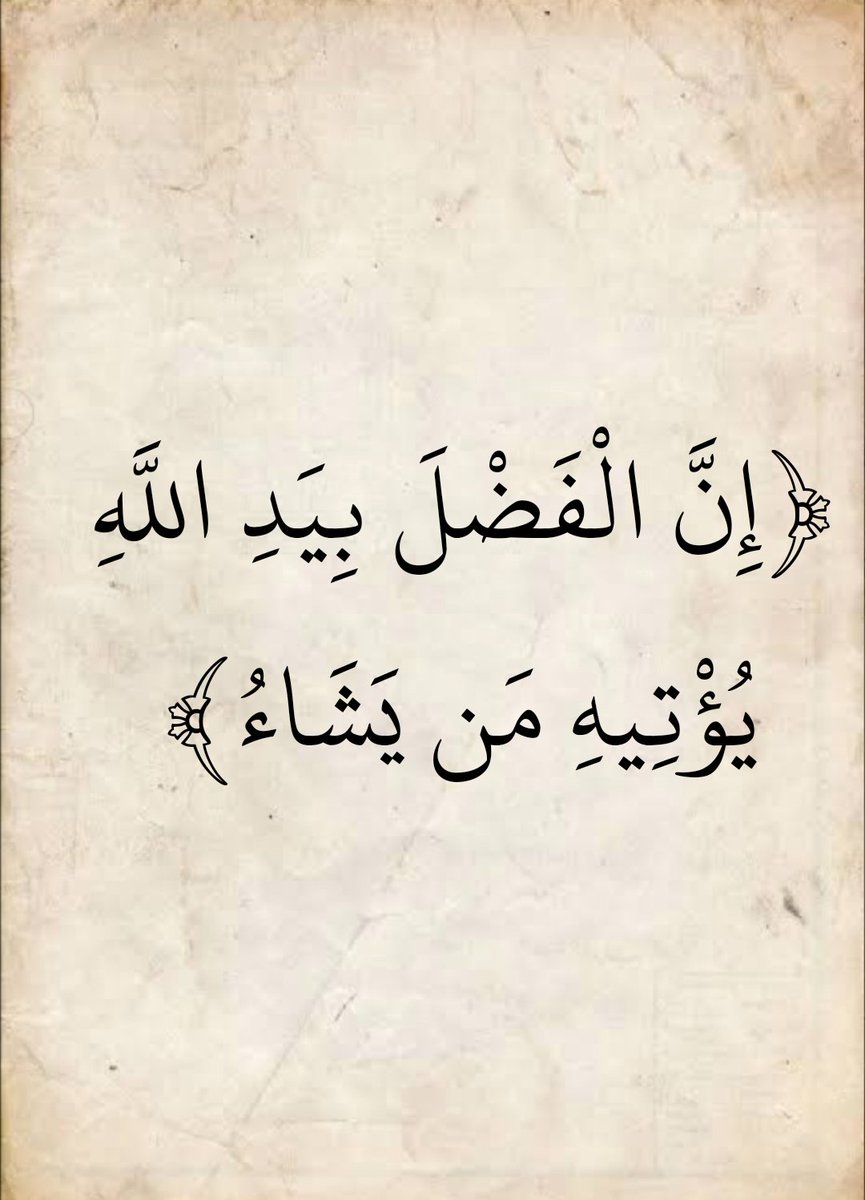 ﴿إِنَّ الْفَضْلَ بِيَدِ اللَّهِ
يُؤْتِيهِ مَن يَشَاءُ﴾